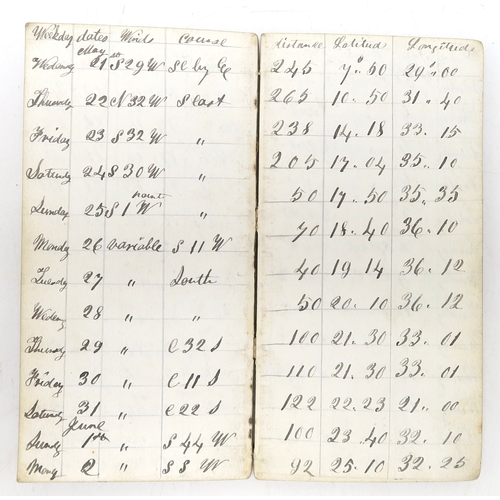 Weekday dates Winds Course distance Latitud Longitude
May
Wedensy 21 S 29 W SE by E 245 7° 50 29°.00
Thursdy 22 N 32 W S East 265 10. 50 31. 40
Friday 23 S 32 W " 238 14. 18 33. 15
Saturdy 24 S 30 W " 205 17. 04 35. 10
Sunday 25 S 1 point W " 50 17. 50 35. 35
Monday 26 variable S 11 W 70 18. 40 36. 10
Tusday 27 " South 40 19 14 36. 12
Wedensy 28 " " 50 20. 10 36. 12
Thursdy 29 " E 32 S 100 21. 30 33. 01
Friday 30 " E 11 S 110 21. 30 33. 01
Saturdy 31 " E 22 S 122 22. 23 21. 00
June
Sundy 1st " S 44 W 100 23. 40 32. 10
Mony 2 " S S W 92 25. 10 32. 25